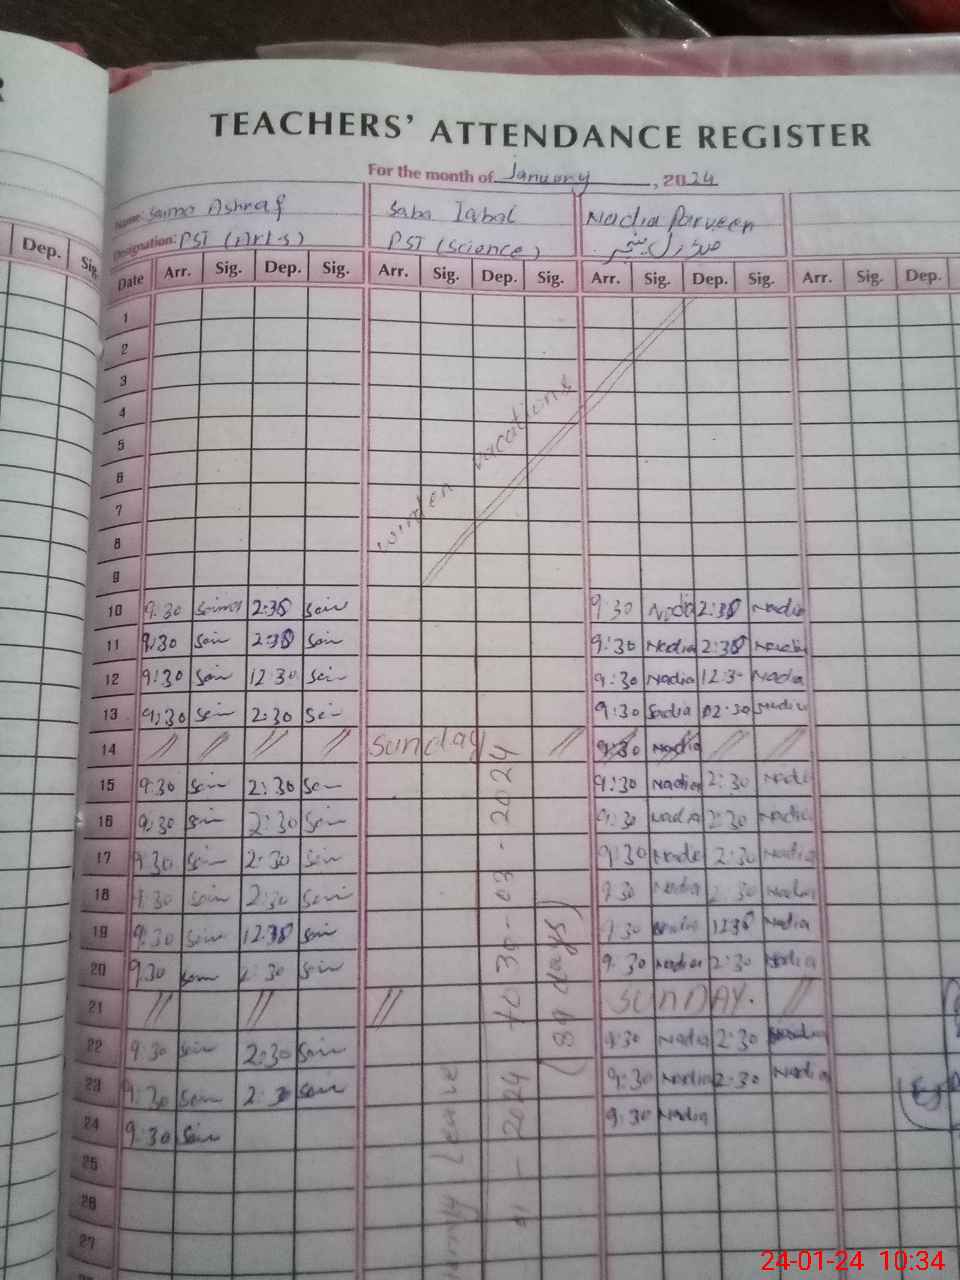 TEACHERS' ATTENDANCE REGISTER
For the month of January, 2024
Name: Saima Ashraf Saba Iqbal Nadia Parveen
Designation: PST (Arts) PST (Science)
Dep. Sig.
Date Arr. Sig. Dep. Sig. Arr. Sig. Dep. Sig. Arr. Sig. Dep. Sig. Arr. Sig. Dep.
1
2
3
4
5
6
7
8
9
winter vacations
10 9:30 Saima 2:30 Sain 9:30 Nadia 2:30 Nadia
11 9:30 Sain 2:30 Sain 9:30 Nadia 2:30 Nadia
12 9:30 Sain 12:30 Sain 9:30 Nadia 12:3- Nadia
13 9:30 Sain 2:30 Sain 9:30 Nadia 02:30 Nadia
14 // // // // Sunday // 9:30 Nadia // //
15 9:30 Sain 2:30 Sain 9:30 Nadia 2:30 Nadia
16 9:30 Sain 2:30 Sain 9:30 Nadia 2:30 Nadia
17 9:30 Sain 2:30 Sain 9:30 Nadia 2:30 Nadia
18 9:30 Sain 2:30 Sain 9:30 Nadia 2:30 Nadia
19 9:30 Sain 12:30 Sain 9:30 Nadia 12:30 Nadia
20 9:30 Sain 2:30 Sain 9:30 Nadia 2:30 Nadia
21 // // // SUNDAY. //
22 9:30 Sain 2:30 Sain 9:30 Nadia 2:30 Nadia
23 9:30 Sain 2:30 Sain 9:30 Nadia 2:30 Nadia
24 9:30 Sain 9:30 Nadia
25
26
27
Leave
01 - 2024 to 30 - 03 - 2024
(89 days)
24-01-24 10:34